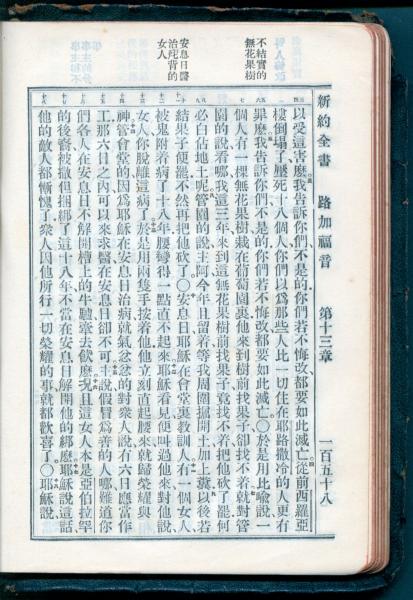 新約全書　路加福音　第十三章　一百五十八
不結實的
無花果樹
安息日醫
治駝背的
女人
以受這害麼我告訴你們不是的你們若不悔改都要如此滅亡從前西羅亞
樓倒塌了壓死十八個人你們以爲那些人比一切住在耶路撒冷的人更有
罪麼我告訴你們不是的你們若不悔改都要如此滅亡○於是用比喻說一
個人有一棵無花果樹栽在葡萄園裏他來到樹前找果子卻找不着就對管
園的說看哪我這三年來到這無花果樹前找果子竟找不着把他砍了罷何
必白佔地土呢管園的說主阿今年且留着等我周圍掘開土加上糞以後若
結果子便罷不然再把他砍了○安息日耶穌在會堂裏教訓人有一個女人
被鬼附着病了十八年腰彎得一點直不起來耶穌看見便叫過他來對他說
女人你脫離這病了於是用兩隻手按着他他立刻直起腰來就歸榮耀與
神管會堂的因爲耶穌在安息日治病就氣忿忿的對衆人說有六日應當作
工那六日之內可以來求醫在安息日卻不可主說假冒爲善的人哪難道你
們各人在安息日不解開槽上的牛驢牽去飲麼況且這女人本是亞伯拉罕
的後裔被撒但捆綁了這十八年不當在安息日解開他的綁麼耶穌說這話
他的敵人都慚愧了衆人因他所行一切榮耀的事就都歡喜了○耶穌說